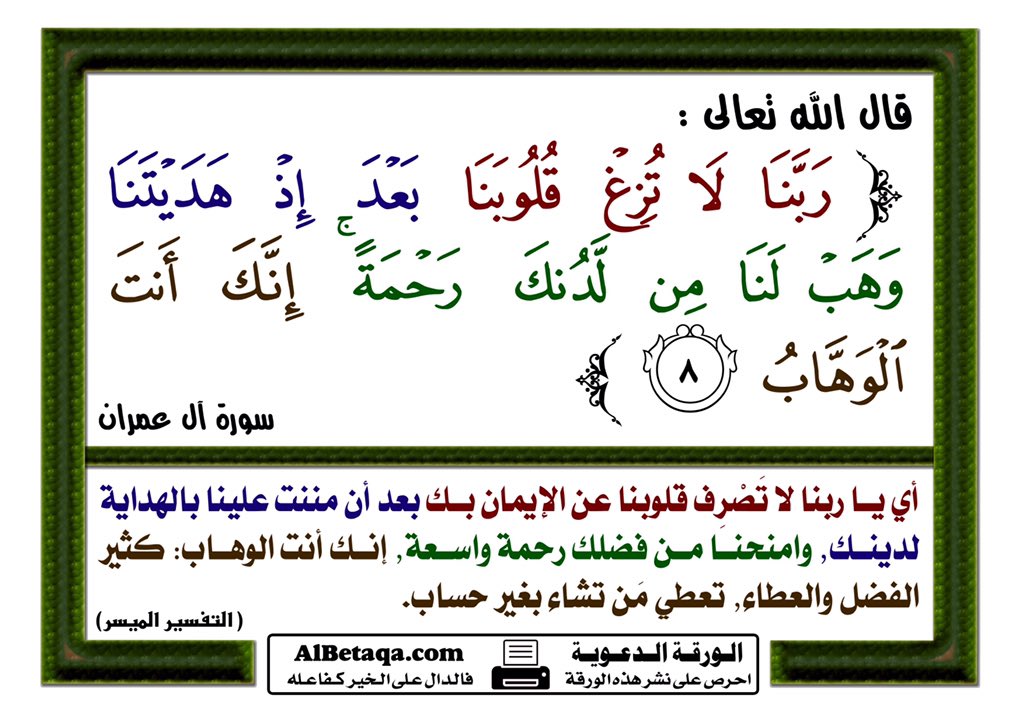 قال الله تعالى :
﴿ رَبَّنَا لَا تُزِغْ قُلُوبَنَا بَعْدَ إِذْ هَدَيْتَنَا
وَهَبْ لَنَا مِن لَّدُنكَ رَحْمَةً ۚ إِنَّكَ أَنتَ
ٱلْوَهَّابُ ٨ ﴾
سورة آل عمران
أي يا ربنا لا تَصْرِف قلوبنا عن الإيمان بك بعد أن مننت علينا بالهداية
لدينك, وامنحنا من فضلك رحمة واسعة, إنك أنت الوهاب: كثير
الفضل والعطاء, تعطي مَن تشاء بغير حساب.
(التفسير الميسر)
الورقة الدعوية
احرص على نشر هذه الورقة
AlBetaqa.com
فالدال على الخير كفاعله